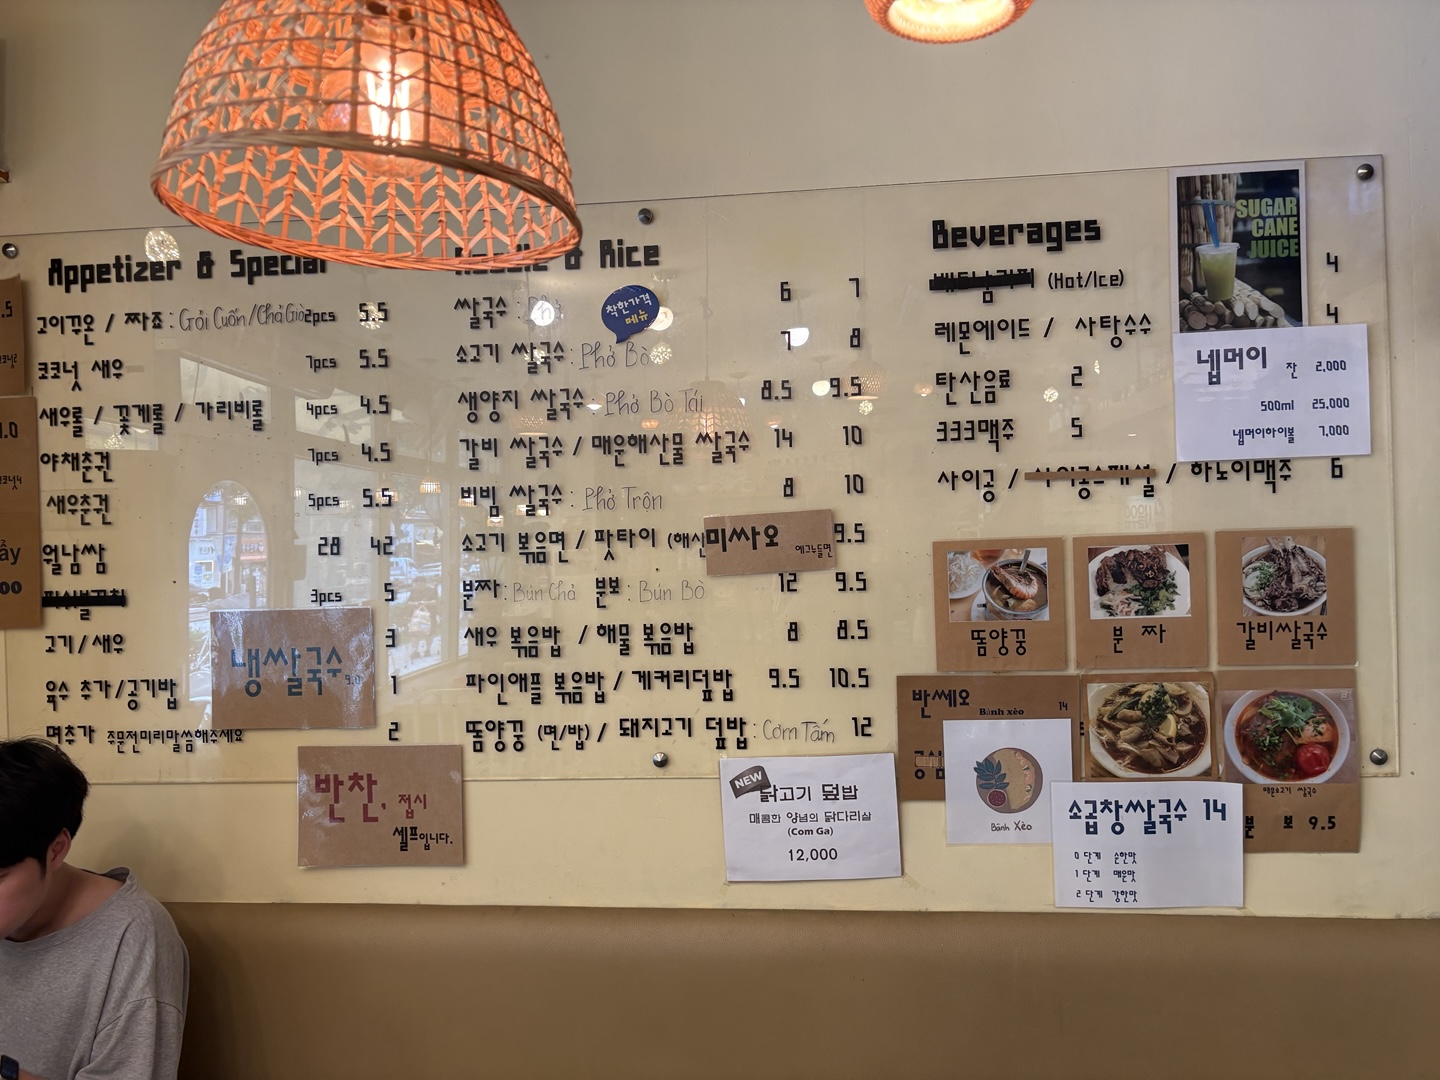 Appetizer & Special
고이꾸온 / 짜죠 : Gỏi Cuốn/Chả Giò 2pcs 5.5
코코넛 새우 7pcs 5.5
새우롤 / 꽃게롤 / 가리비롤 4pcs 4.5
야채춘권 7pcs 4.5
새우춘권 5pcs 5.5
월남쌈 28 42
3pcs 5
고기/새우 3
육수 추가/공기밥 1
면추가 주문전미리말씀해주세요 2
냉쌀국수 9.0
반찬, 접시
셀프입니다.
& Rice
쌀국수 : 6 7
착한가격
메뉴
소고기 쌀국수 : Phở Bò 7 8
생양지 쌀국수 : Phở Bò Tái 8.5 9.5
갈비 쌀국수 / 매운해산물 쌀국수 14 10
비빔 쌀국수 : Phở Trộn 8 10
소고기 볶음면 / 팟타이 (해산 9.5
미싸오 에그누들면
분짜 : Bún Chả 분보 : Bún Bò 12 9.5
새우 볶음밥 / 해물 볶음밥 8 8.5
파인애플 볶음밥 / 게커리덮밥 9.5 10.5
똠양꿍 (면/밥) / 돼지고기 덮밥 : Cơm Tấm 12
NEW
닭고기 덮밥
매콤한 양념의 닭다리살
(Com Ga)
12,000
Beverages
(Hot/Ice) 4
레몬에이드 / 사탕수수 4
탄산음료 2
333맥주 5
사이공 / 사이공스페셜 / 하노이맥주 6
SUGAR
CANE
JUICE
넵머이 잔 2,000
500ml 25,000
넵머이하이볼 7,000
똠양꿍
분 짜
갈비쌀국수
반쎄오 Bành xèo 14
Bánh Xèo
매운소고기 쌀국수
분 보 9.5
소곱창쌀국수 14
0 단계 순한맛
1 단계 매운맛
2 단계 강한맛